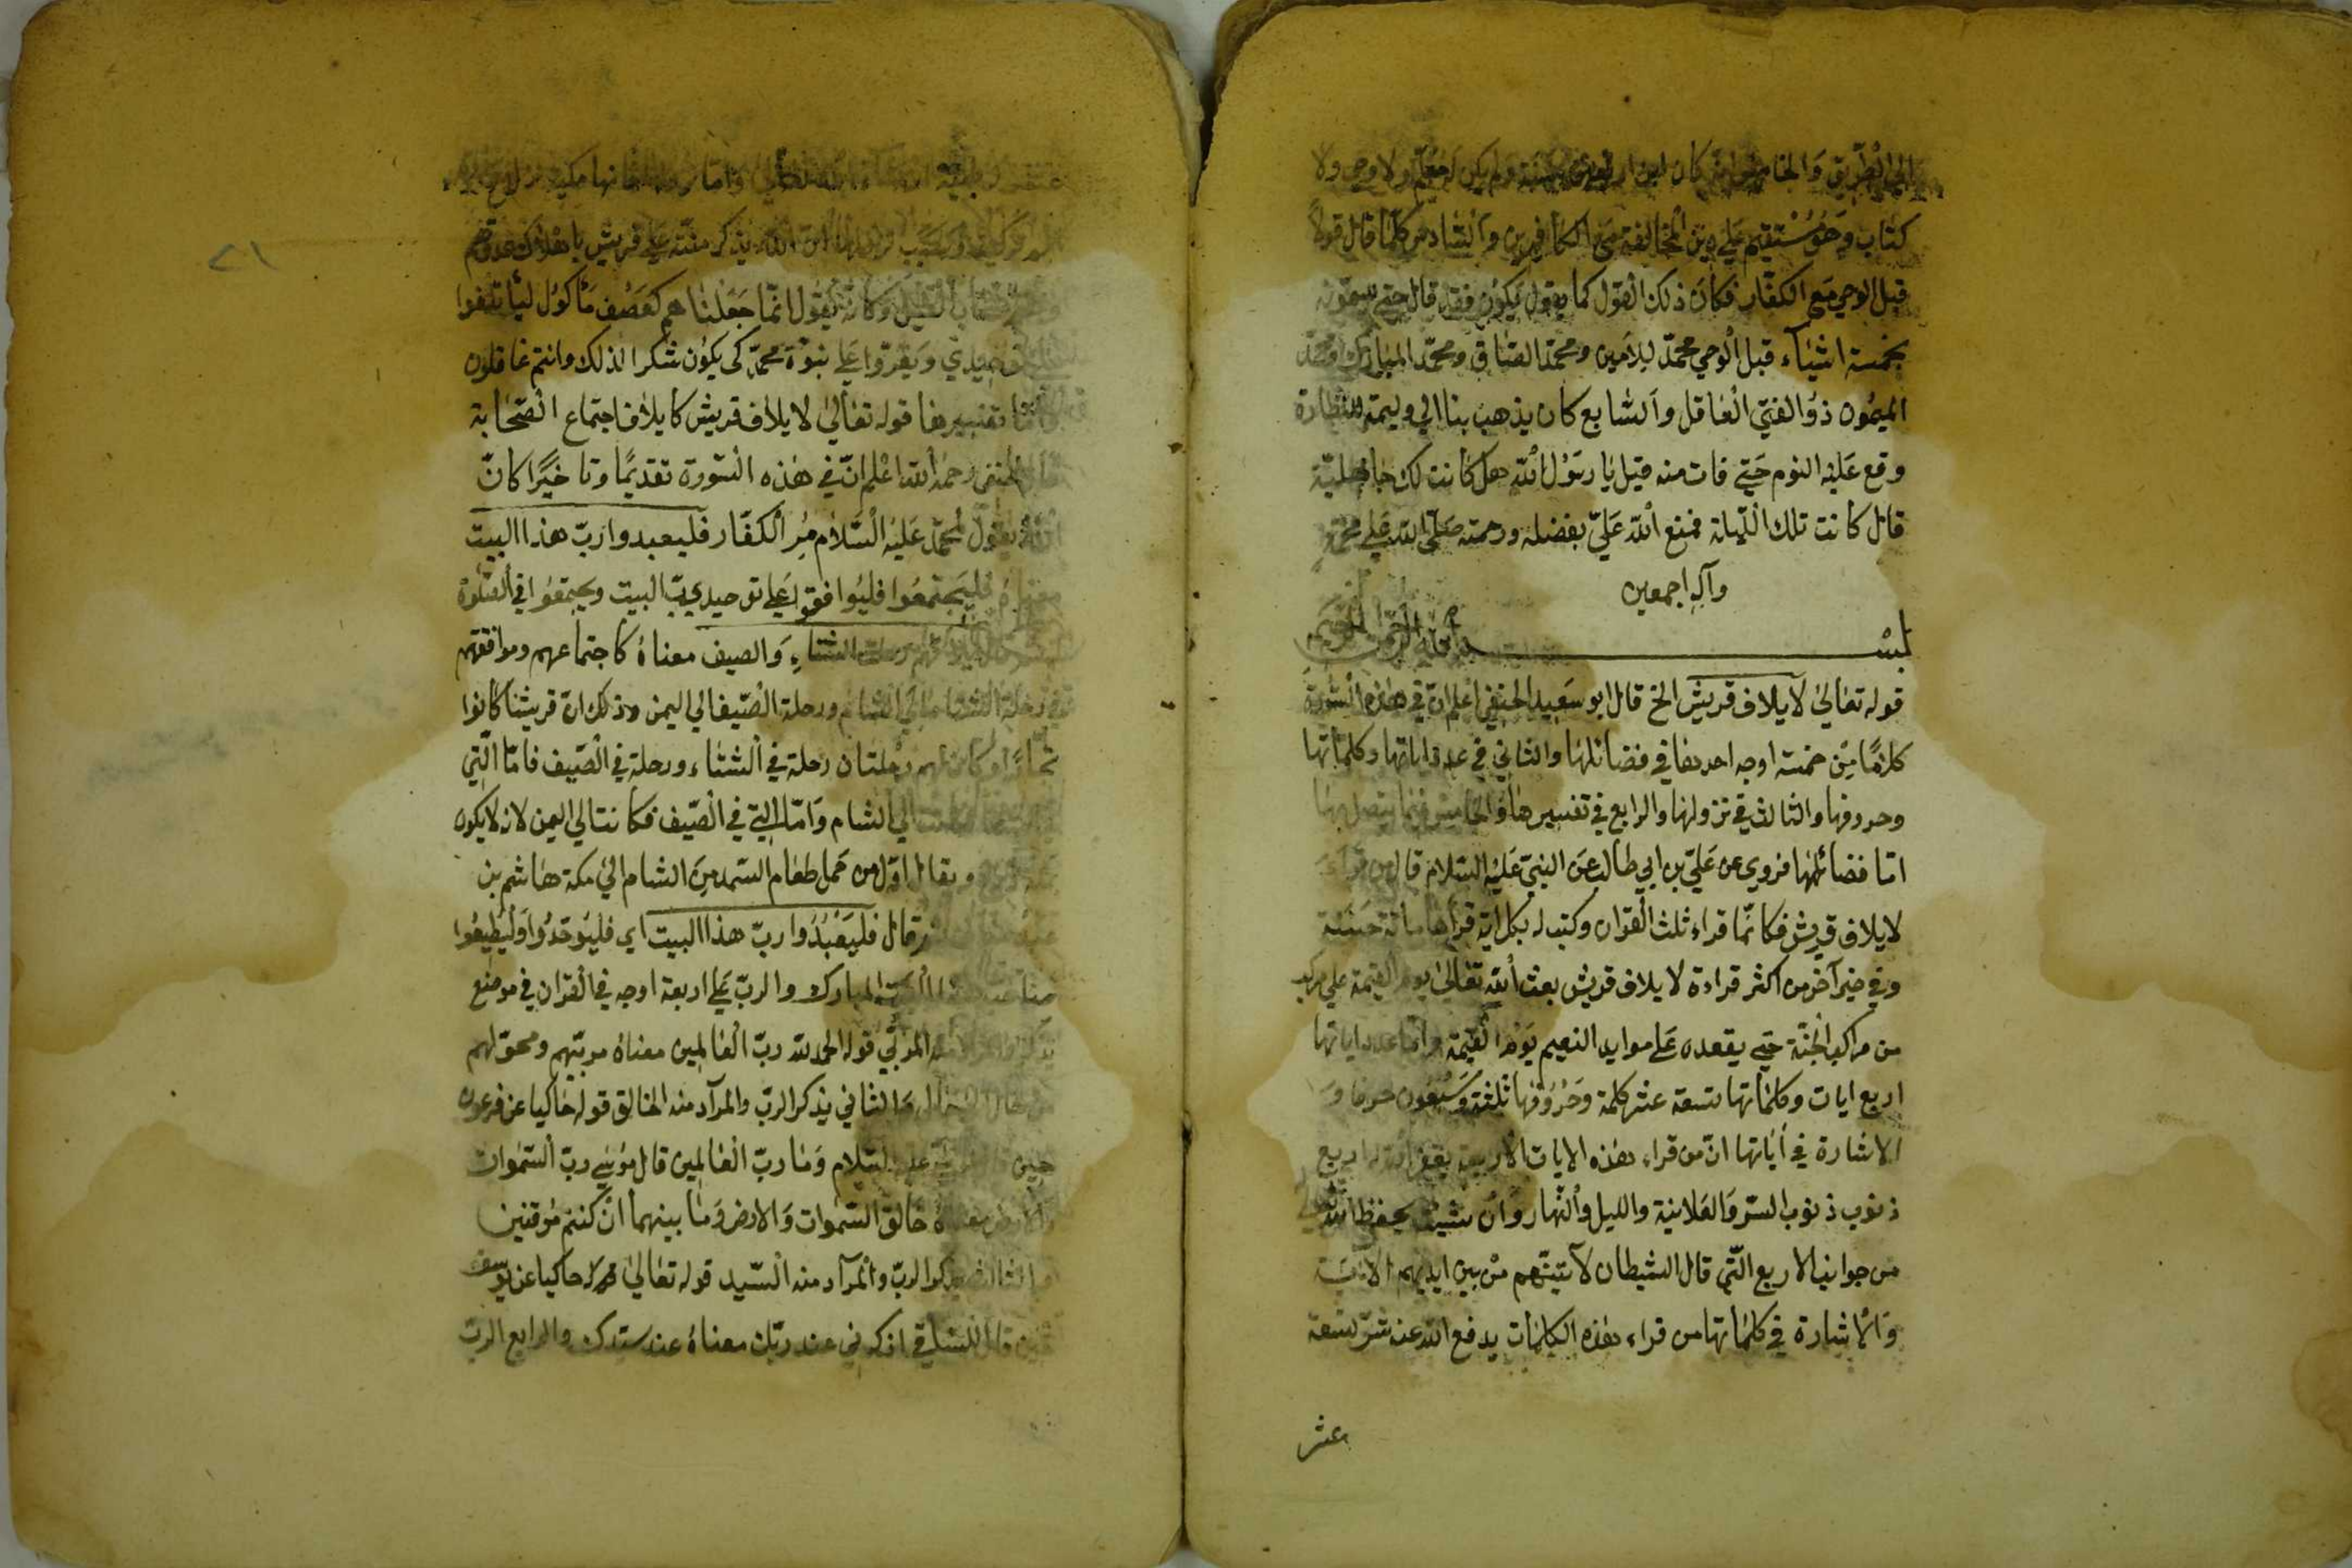 الى الطريق والخامس انه كان ابن اربعين سنة ولم يكن له معلم ولا وحي ولا
كتاب وهو مستقيم على دين المخالفة مع الكافرين والسادس كلما قال قولا
قبل الوحي مع الكفار فكان ذلك القول كما يقول يكون فقد قال حتى سمّوه
بخمسة اشياء قبل الوحي محمد الامين ومحمد الصادق ومحمد المبارك ومحمد
الميمون ذو الفتى العاقل والسابع كان يذهب بنا الي وليمة للنظارة
وقع عليه النوم حتى فات منه قيل يا رسول الله هل كانت لك جاهلية
قال كانت تلك الليلة فمنع الله عليّ بفضله ورحمته صلى الله على محمد
وآله اجمعين
بسم الله الرحمن الرحيم
قوله تعالى لايلاف قريش الخ قال ابو سعيد الحنفي اعلم ان في هذه السورة
كلاما من خمسة اوجه احدها في فضائلها والثاني في عدد اياتها وكلماتها
وحروفها والثالث في نزولها والرابع في تفسيرها والخامس فيما يتصل بها
امّا فضائلها فروي عن عليّ بن ابي طالب عن النبيّ عليه السلام قال من قرأ
لايلاف قريش فكانّما قراء ثلث القران وكتب له بكل اية قرأها مائة حسنة
وفي خبر آخر من اكثر قراءة لايلاف قريش بعث الله تعالى يوم القيمة على مركب
من مراكب الجنّة حتى يقعده على موايد النعيم يوم القيمة وامّا عدد اياتها
اربع ايات وكلماتها تسعة عشر كلمة وحروفها ثلثة وسبعون حرفا و
الاشارة في أياتها انّ من قراء هذه الايات الاربعة يغفر الله له اربع
ذنوب ذنوب السرّ والعلانية والليل والنهار وان شيت يحفظ الله
من جوانبه الاربع التّى قال الشيطان لآتينّهم من بين ايديهم الاية
والاشارة في كلماتها من قراء هذه الكلمات يدفع الله عنه شرّ تسعة
عشر
٢١
وامّا نزولها فانها مكية
نزلها ان الله يذكر منّته على قريش باهلاك عدوّهم
اصحاب الفيل وكانه يقول انّما جعلناهم كعصف مأكول ليأتلفوا
توحيدي ويقرّوا على نبوّة محمّد كى يكون شكرا لذلك وانتم غافلون
وامّا تفسيرها قوله تعالى لايلاف قريش كايلاف اجتماع الصحابة
قال الحنفي رحمه الله اعلم انّ في هذه السورة تقديمًا وتاخيرًا كانّ
الله يقول لمحمّد عليه السّلام مُر الكفّار فليعبدوا ربّ هذا البيت
معناه فليجتمعوا فليوافقوا على توحيدي ربّ البيت ويجتمعوا في الصّلوة
رحلة الشتاء والصيف معناه كاجتماعهم وموافقتهم
في رحلة الشتاء الي الشام ورحلة الصّيف الي اليمن وذلك انّ قريشا كانوا
تجّارًا وكان لهم رحلتان رحلة في الشتاء ورحلة في الصّيف فامّا الّتي
الي الشام وامّا التي في الصّيف فكانت الي اليمن لانه لا يكون
ويقال اوّل من حمل طعام السمد من الشام الي مكة هاشم بن
عبد مناف ثم قال فليعبدوا ربّ هذا البيت اى فليوحّدوا وليطيعوا
هذا البيت المبارك والربّ على اربعة اوجه في القران في موضع
يذكر والمراد منه المربّي قوله الحمد لله ربّ العالمين معناه مربّيهم ومحوّلهم
من حال الى حال والثاني يذكر الربّ والمرآد منه الخالق قوله حاكيا عن فرعون
حين قال لموسى عليه السّلام وما ربّ العالمين قال موسى ربّ السّموات
والارض معناه خالق السّموات والارض وما بينهما ان كنتم موقنين
والثالث يذكر الربّ والمرآد منه السّيد قوله تعالى حاكيا عن يوسف
حين قال للساقي اذكرني عند ربّك معناه عند سيّدك والرابع الربّ